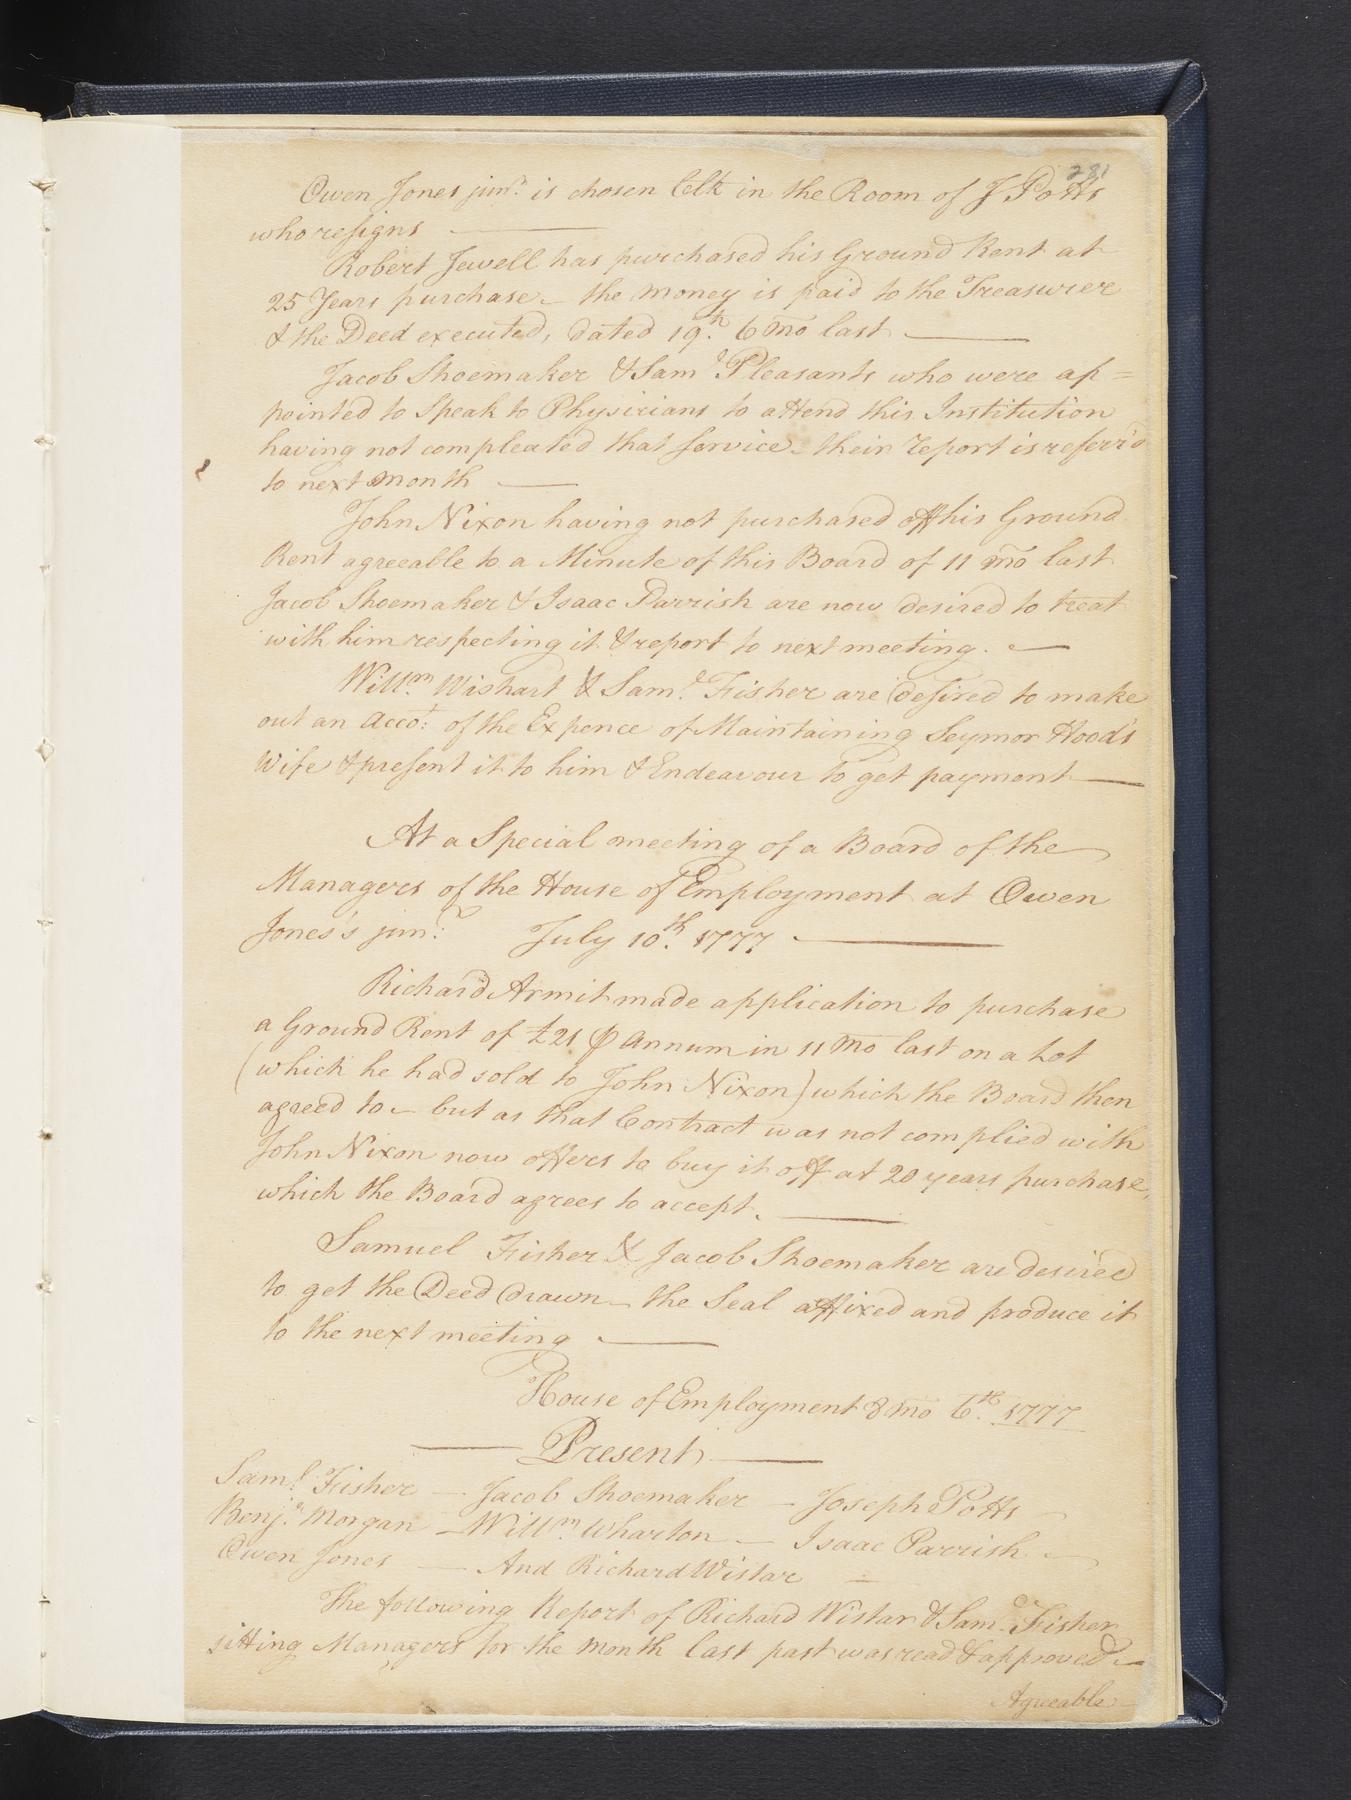 281
Owen Jones junr. is chosen Clk in the Room of J Potts
who resigns
Robert Jewell has purchased his Ground Rent at
25 Years purchase – the money is paid to the Treasurer
& the Deed executed, dated 19.th 6 mo last
Jacob Shoemaker & Saml. Pleasants who were ap=
pointed to speak to Physicians to attend this Institution
having not compleated that service – their report is referr'd
to next month
John Nixon having not purchased off his Ground
Rent agreeable to a Minute of this Board of 11 mo last
Jacob Shoemaker & Isaac Parrish are now desired to treat
with him respecting it & report to next meeting.
Willm. Wishart & Saml. Fisher are desired to make
out an Accot. of the Expence of Maintaining Seymor Hood's
Wife & present it to him & Endeavour to get payment
At a Special meeting of a Board of the
Managers of the House of Employment at Owen
Jones's junr. July 10th. 1777
Richard Armit made application to purchase
a Ground Rent of £21 ⅌ Annum in 11 mo last on a Lot
(which he had sold to John Nixon) which the Board then
agreed to – but as that Contract was not complied with
John Nixon now offers to buy it off at 20 years purchase,
which the Board agrees to accept.
Samuel Fisher & Jacob Shoemaker are desired
to get the Deed drawn – the Seal affixed and produce it
to the next meeting
House of Employment 8 mo 6th. 1777
Present
Saml. Fisher — Jacob Shoemaker — Joseph Potts
Benjn. Morgan — Willm. Wharton — Isaac Parrish
Owen Jones — And Richard Wistar
The following Report of Richard Wistar & Saml. Fisher
sitting Managers for the month last past was read & approved –
Agreeable